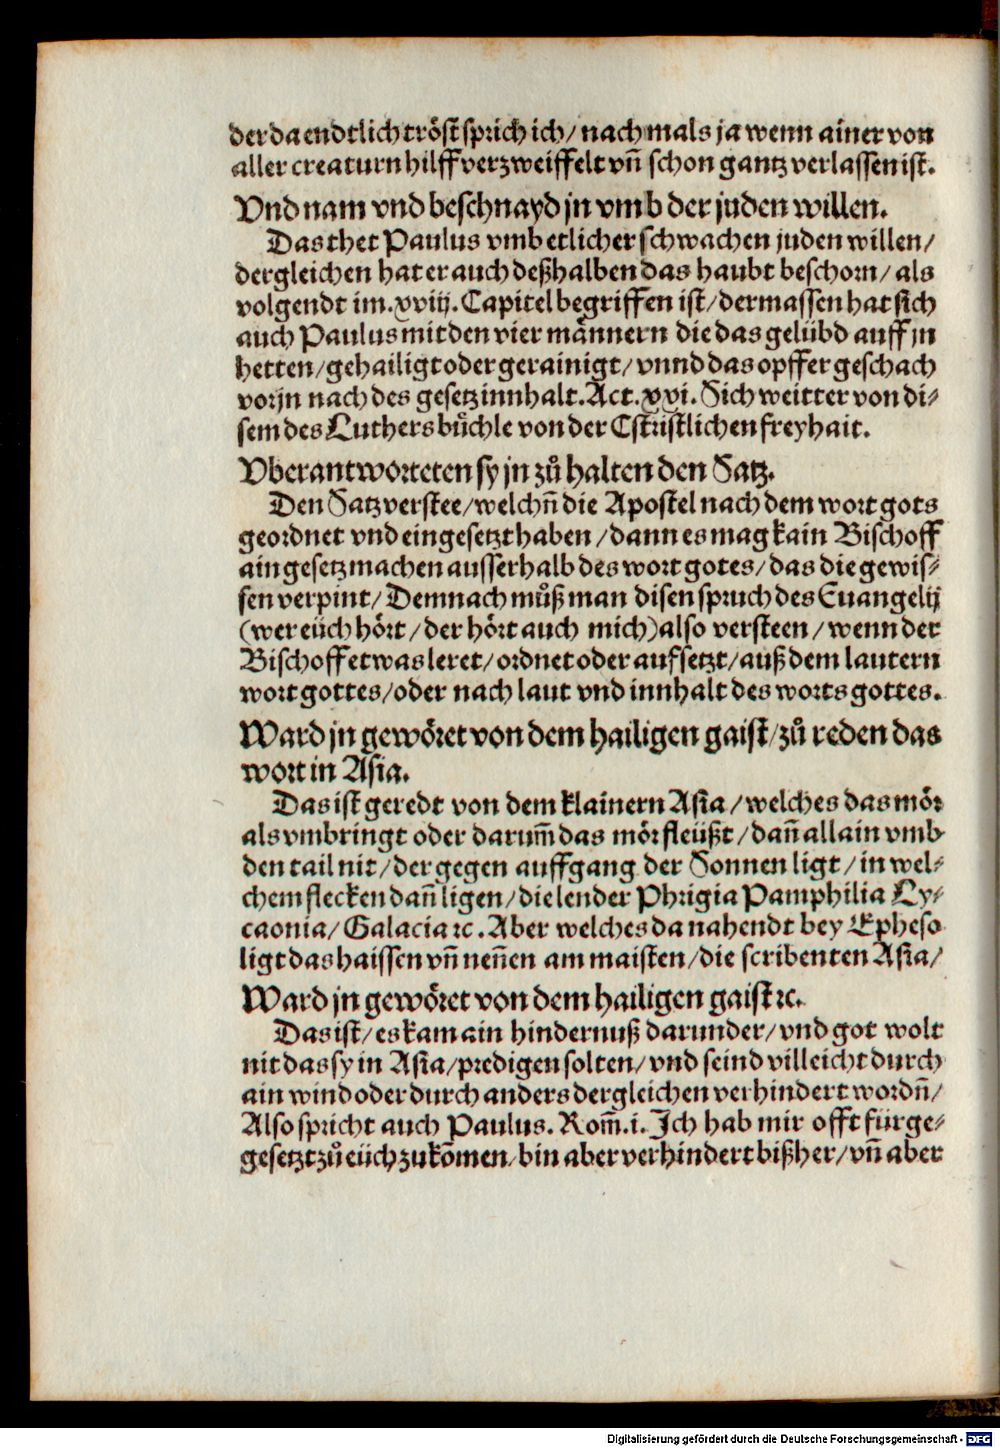 der da endtlich tröst sprich ich/ nachmals ja wenn ainer von
aller creaturn hilff verzweiffelt vn̄ schon gantz verlassen ist.
Vnd nam vnd beschnayd jn vmb der juden willen.
Das thet Paulus vmb etlicher schwachen juden willen/
dergleichen hat er auch deßhalben das haubt beschorn/ als
volgendt im .xviij. Capitel begriffen ist/ dermassen hat sich
auch Paulus mit den vier männern die das gelübd auff jn
hetten/ gehailigt oder gerainigt/ vnnd das opffer geschach
vor jn nach des gesetz innhalt. Act. xxi. Sich weitter von di⸗
sem des Luthers büchle von der Cstristlichen freyhait.
Vberantworteten sy jn zů halten den Satz.
Den Satz verstee/ welchn̄ die Apostel nach dem wort gots
geordnet vnd eingesetzt haben/ dann es mag kain Bischoff
ain gesetz machen ausserhalb des wort gotes/ das die gewis⸗
sen verpint/ Demnach můß man disen spruch des Euangelij
(wer eüch hört/ der hört auch mich) also versteen/ wenn der
Bischoff etwas leret/ ordnet oder aufsetzt/ auß dem lautern
wort gottes/ oder nach laut vnd innhalt des worts gottes.
Ward jn gewöret von dem hailigen gaist/ zů reden das
wort in Asia.
Das ist geredt von dem klainern Asia/ welches das mör
als vmbringt oder darum̄ das mör fleüßt/ dan̄ allain vmb
den tail nit/ der gegen auffgang der Sonnen ligt/ in wel⸗
chem flecken dan̄ ligen/ die lender Phrigia Pamphilia Ly⸗
caonia/ Galacia ꝛc. Aber welches da nahendt bey Epheso
ligt das haissen vn̄ nen̄en am maisten/ die scribenten Asia/
Ward jn gewöret von dem hailigen gaist ꝛc.
Das ist/ es kam ain hindernuß darunder/ vnd got wolt
nit das sy in Asia/ predigen solten/ vnd seind villeicht durch
ain wind oder durch anders dergleichen verhindert wordn̄/
Also spricht auch Paulus. Rom̄. i. Ich hab mir offt fürge⸗
gesetzt zů eüch zukōmen/ bin aber verhindert bißher/ vn̄ aber
Digitalisierung gefördert durch die Deutsche Forschungsgemeinschaft - DFG